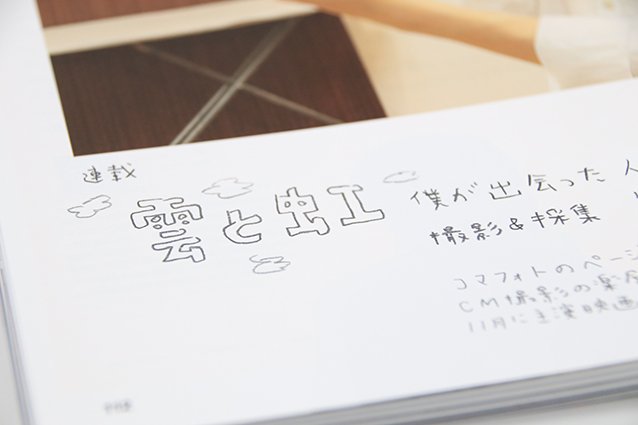 連載
雲と虹
僕が出会った人
撮影&採集
コマフォトのページ
CM撮影の楽
11月に主演映画